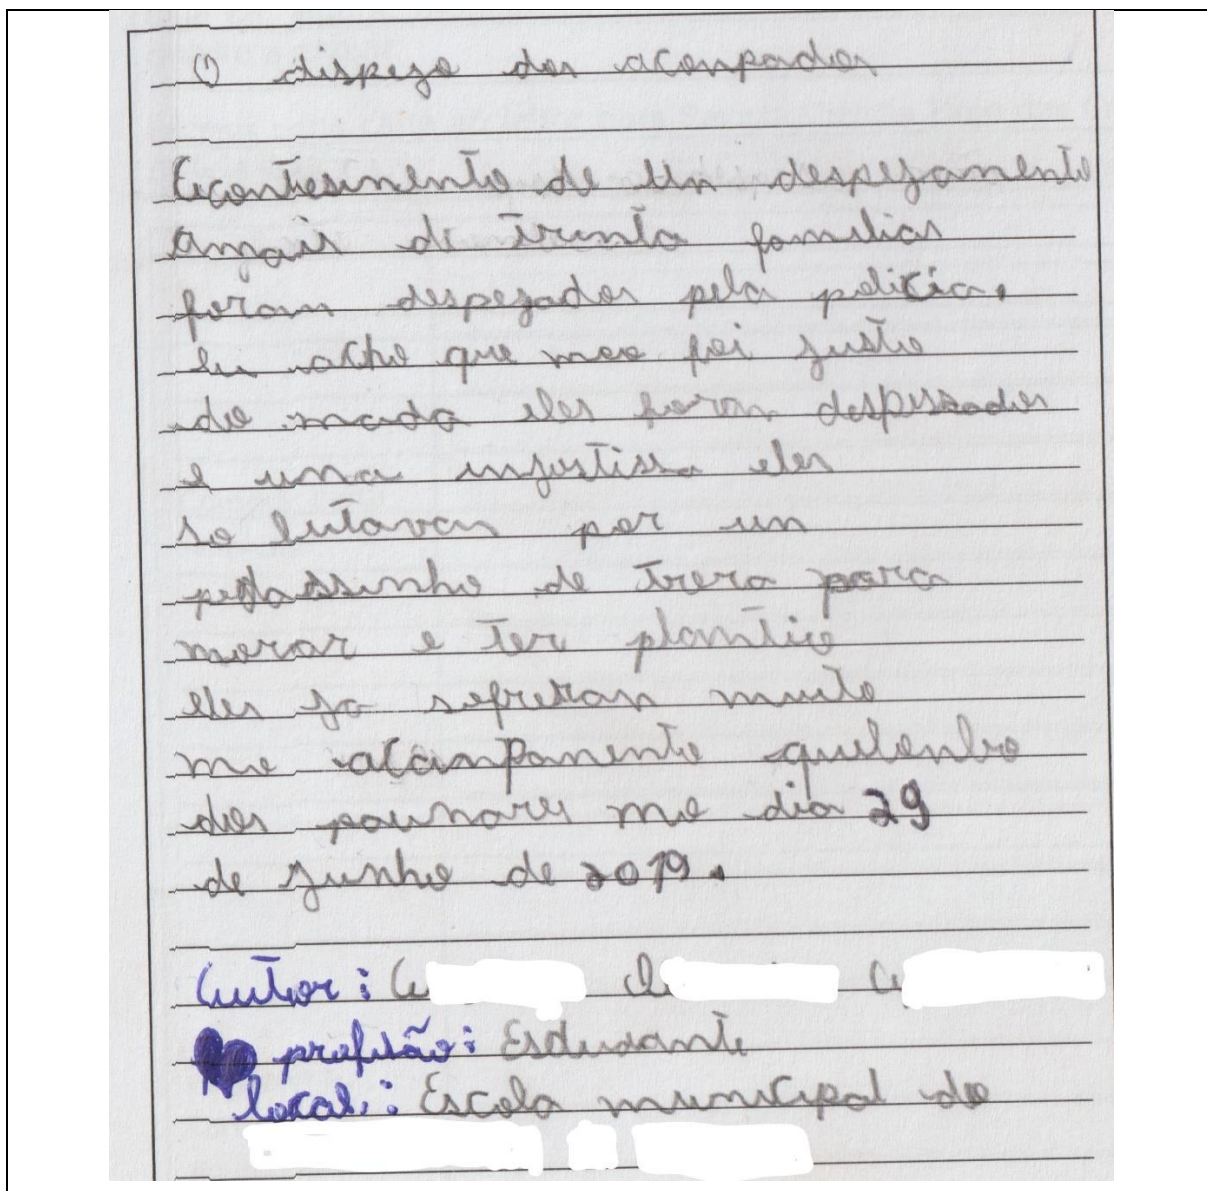 O dispejo dos aconpados
Acontesimento de Un despejamento
amais de trinta familias
foram despejados pela policia.
eu acho que nao foi justo
do nada eles foran despejados
e uma injustissa eles
so lutavan por un
pedassinho de trera para
morar e ter plantio
eles ja sofreran muito
no acanpamento quilonbo
dos paumares no dia 29
de junho de 2019.
Autor:
profisão: Esdudante
local: Escola municipal do